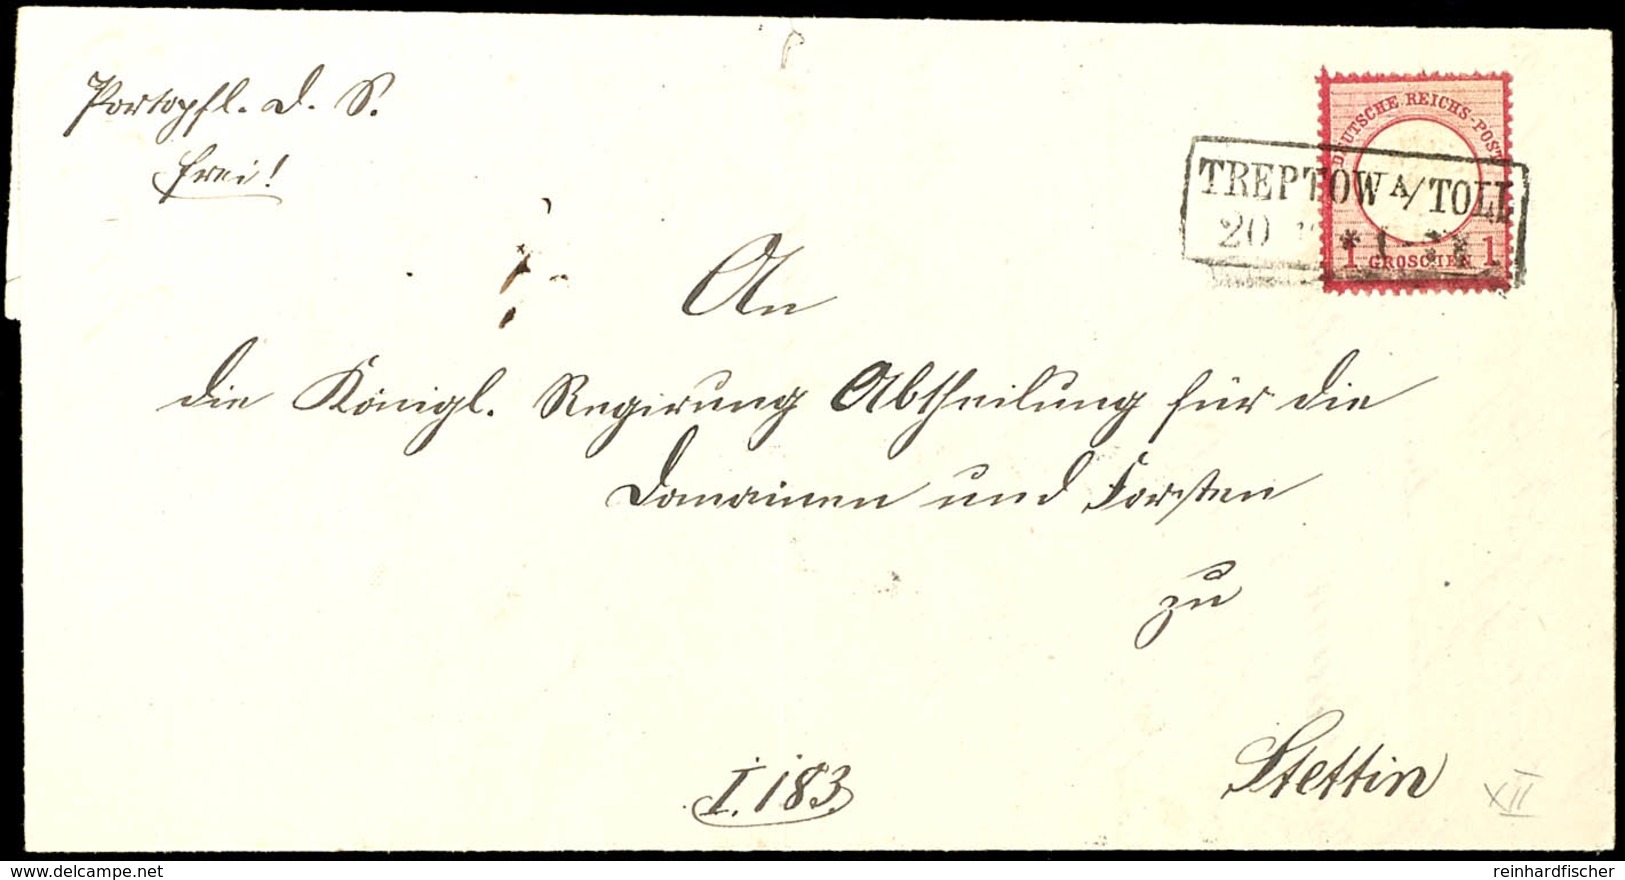 Portopfl. D. S.
frei!
DEUTSCHE REICHS-POST
TREPTOW A/TOLL
20
1 GROSCHEN 1
An
die Königl. Regirung Abtheilung für die
Domainen und Forsten
zu
Stettin
I. 183.
XII
delcampe.net
reinhardfischer